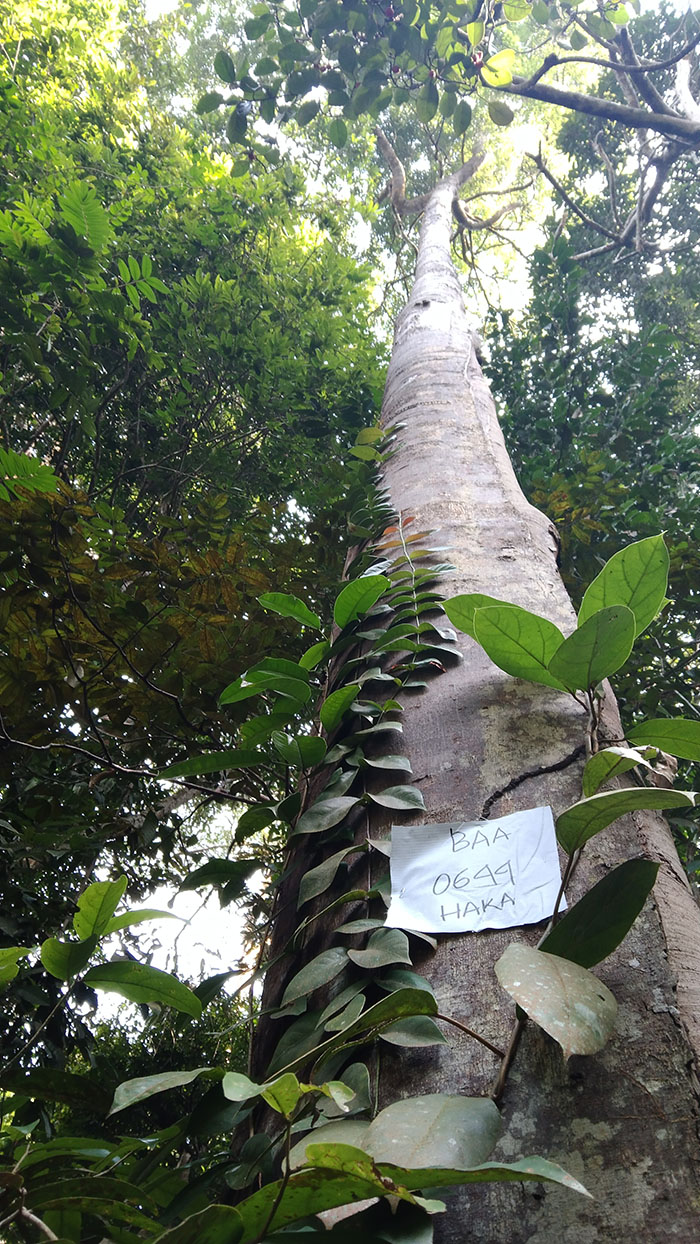 BAA
0644
HAKA